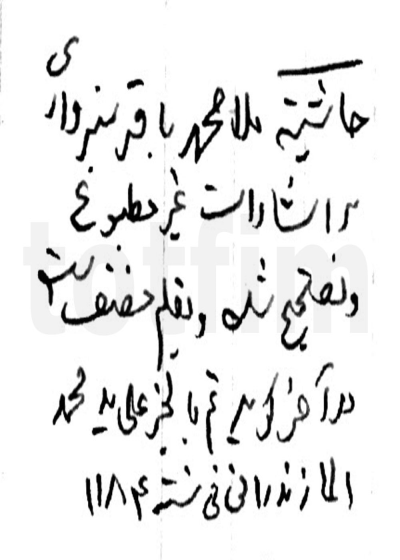 حاشیه ملا محمد باقر سبزواری
بر اشارات غیر مطبوع
و تصحیح شده و بقلم مصنف است
در آخر گوید تم بالخیر علی ید محمد
المازندرانی فی سنه ۱۱۸۴
totfim